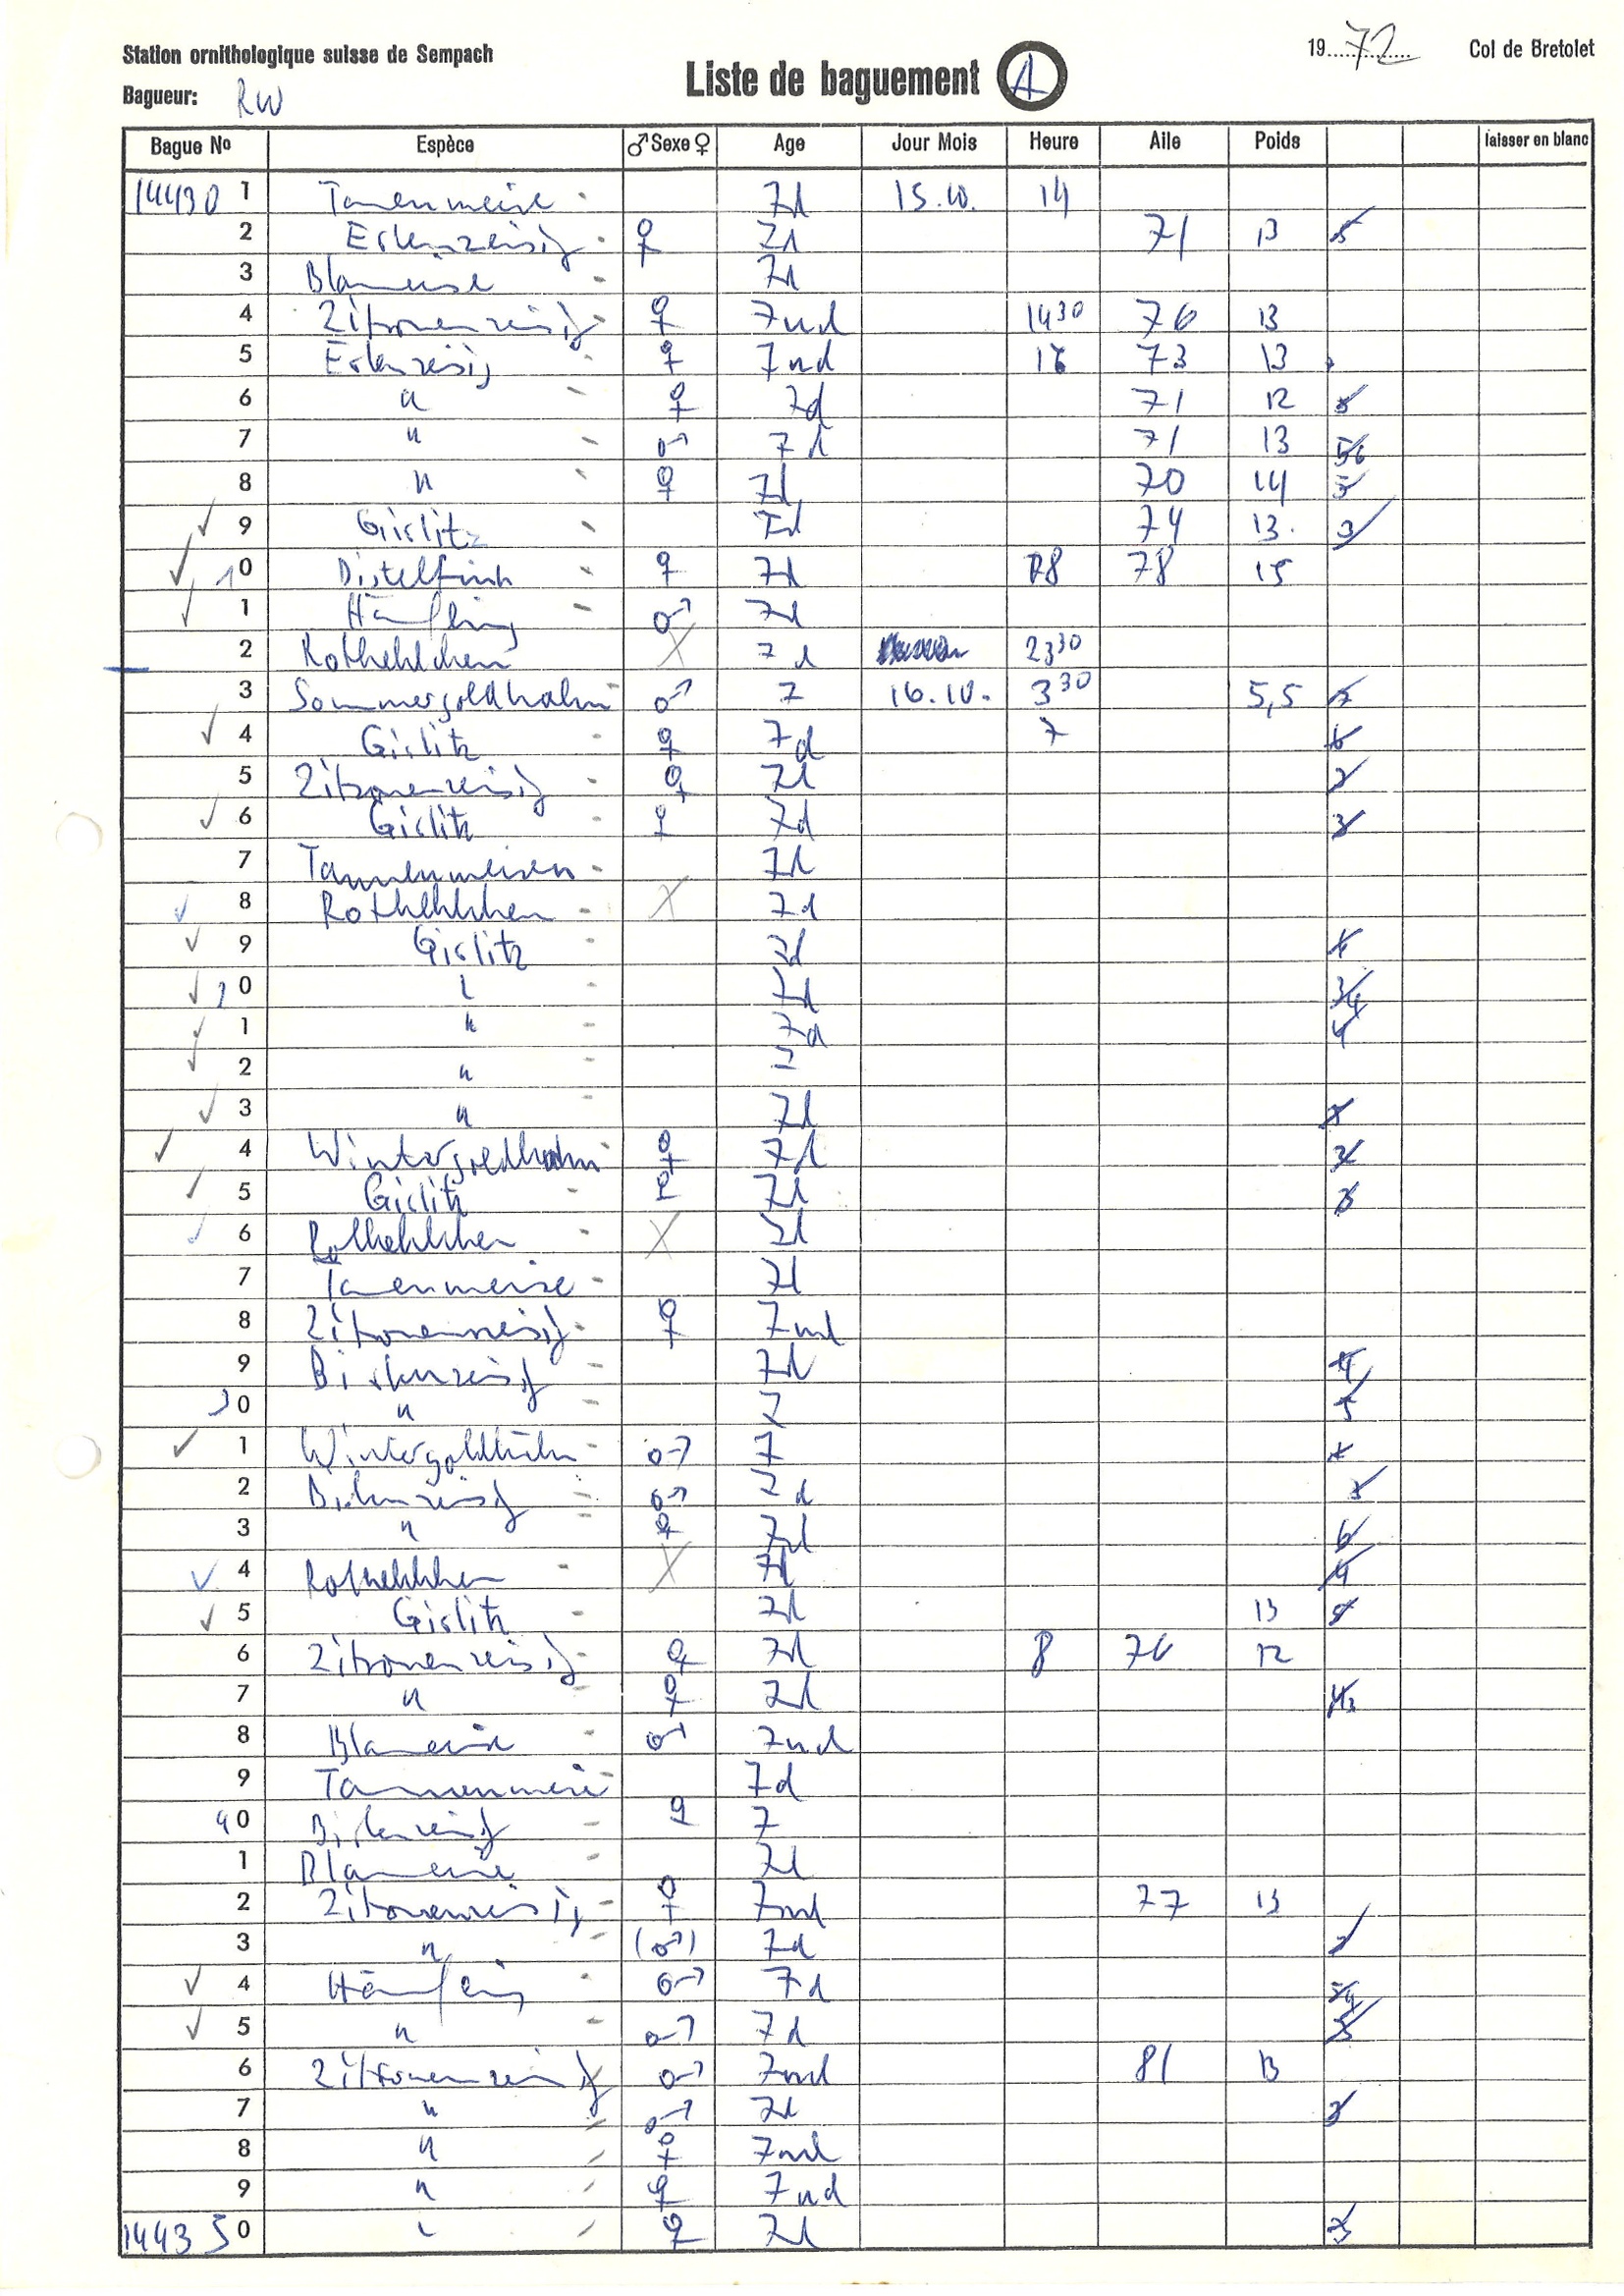 Station ornithologique suisse de Sempach
19 72 Col de Bretolet
Liste de baguement A
Bagueur: RW
Bague No Espèce ♂ Sexe ♀ Age Jour Mois Heure Aile Poids laisser en blanc
14430 1 Tanenmeise - 7d 15.10. 14
2 Erlenzeisig - ♀ 7d 71 13 5
3 Blameise - 7d
4 Zitronenzeisig - ♀ 7nd 14 30 76 13
5 Erlenzeisig - ♀ 7nd 16 73 13
6 " - ♀ 7d 71 12 5
7 " - ♂ 7d 71 13 5/6
8 " - ♀ 7d 70 14 5
✓ 9 Girlitz - 7d 74 13. 3
✓ 10 Distelfink - ♀ 7d 78 15
✓ 1 Hänfling - ♂ 7d
2 Rotkehlchen X 7d 23 30
3 Sommergoldhahn - ♂ 7 16.10. 3 30 5,5
✓ 4 Girlitz - ♀ 7d 7 6
5 Zitronenzeisig - ♀ 7d 2
✓ 6 Girlitz - ♀ 7d 3
7 Tannenmeisen - 7d
✓ 8 Rotkehlchen - X 7d
✓ 9 Girlitz - 7d 4
✓ 20 " - 7d 3/4
✓ 1 " - 7d 4
✓ 2 " - 7
✓ 3 " - 7d
✓ 4 Wintergoldhahn - ♀ 7d 2
✓ 5 Girlitz - ♀ 7d 3
✓ 6 Rotkehlchen - X 7d
7 Tanenmeise - 7d
8 Zitronenzeisig - ♀ 7nd
9 Birkenzeisig - 7d 4
30 " - 7 5
✓ 1 Wintergoldhähn - ♂ 7
2 Birkenzeisig - ♂ 7d
3 " - ♀ 7d 6
✓ 4 Rotkehlchen - X 7d 4
✓ 5 Girlitz - 7d 13
6 Zitronenzeisig - ♀ 7d 8 76 12
7 " - ♀ 7d 4/3
8 Blameise - ♂ 7nd
9 Tannenmeise - 7d
40 Birkenzeisig - ♀ 7
1 Blameise - 7d
2 Zitronenzeisig - ♀ 7nd 77 13
3 " - (♂) 7d
✓ 4 Hänfling - ♂ 7d 3/4
✓ 5 " - ♂ 7d 3
6 Zitronenzeisig ♂ 7nd 81 13
7 " - ♂ 7d 3
8 " - ♀ 7nd
9 " - ♀ 7nd
14435 0 " - ♀ 7d 3